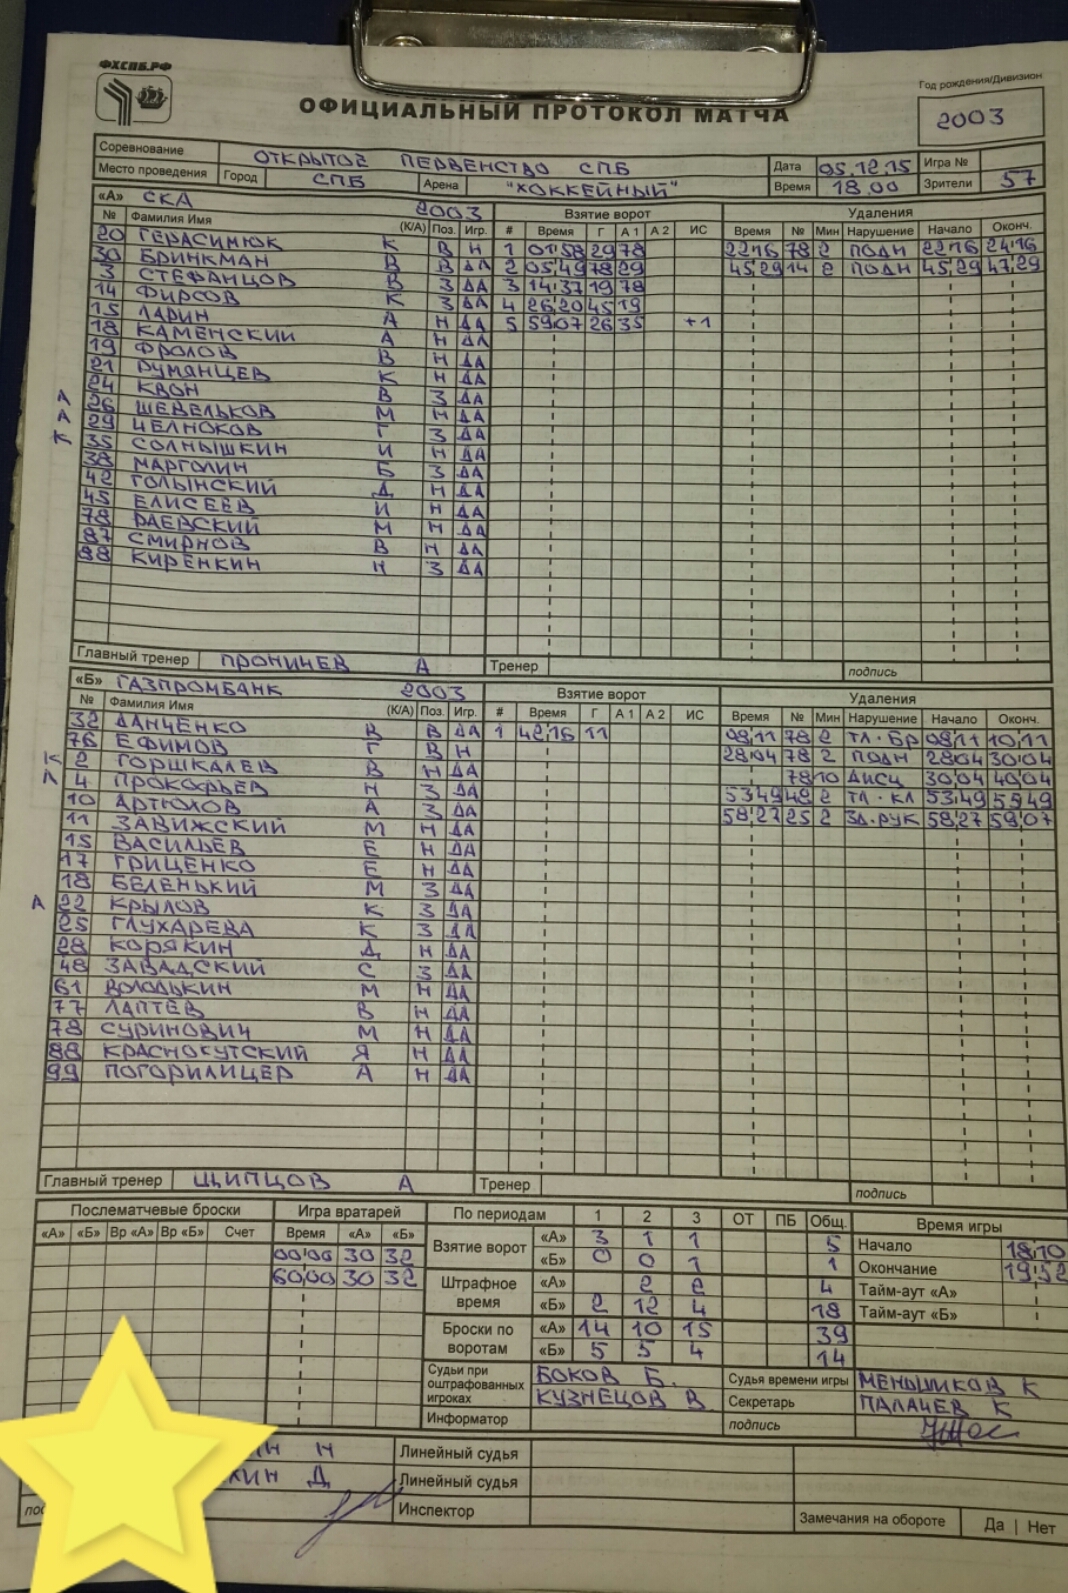 ФХСПБ.РФ
ОФИЦИАЛЬНЫЙ ПРОТОКОЛ МАТЧА
Год рождения/Дивизион
2003
Соревнование ОТКРЫТОЕ ПЕРВЕНСТВО СПБ Дата 05.12.15 Игра №
Место проведения Город СПБ Арена "ХОККЕЙНЫЙ" Время 18.00 Зрители 57
«А» СКА 2003 Взятие ворот Удаления
№ Фамилия Имя (К/А) Поз. Игр. # Время Г А 1 А 2 ИС Время № Мин Нарушение Начало Оконч.
20 ГЕРАСИМЮК К В Н 1 01:58 29 78 22:16 78 2 ПОДН 22:16 24:16
30 БРИНКМАН В В ДА 2 05:49 78 29 45:29 14 2 ПОДН 45:29 47:29
3 СТЕФАНЦОВ В З ДА 3 14:37 19 78
14 ФИРСОВ К З ДА 4 26:20 45 19
15 ЛАРИН А Н ДА 5 59:07 26 35 +1
18 КАМЕНСКИЙ А Н ДА
19 ФРОЛОВ В Н ДА
21 РУМЯНЦЕВ К Н ДА
24 КВОН В З ДА
А 26 ШЕВЕЛЬКОВ М Н ДА
А 29 ЧЕЛНОКОВ Г З ДА
К 35 СОЛНЫШКИН И Н ДА
38 МАРГОЛИН Б З ДА
42 ГОЛЫНСКИЙ Д Н ДА
45 ЕЛИСЕЕВ И Н ДА
78 РАЕВСКИЙ М Н ДА
87 СМИРНОВ В Н ДА
88 КИРЕНКИН Н З ДА
Главный тренер ПРОНИЧЕВ А Тренер подпись
«Б» ГАЗПРОМБАНК 2003 Взятие ворот Удаления
№ Фамилия Имя (К/А) Поз. Игр. # Время Г А 1 А 2 ИС Время № Мин Нарушение Начало Оконч.
32 ДАНЧЕНКО В В ДА 1 42:16 11 08:11 78 2 ТЛ-БР 08:11 10:11
76 ЕФИМОВ Г В Н 28:04 78 2 ПОДН 28:04 30:04
К 2 ГОРШКАЛЕВ В Н ДА 78 10 ДИСЦ 30:04 40:04
А 4 ПРОКОФЬЕВ Н З ДА 53:49 48 2 ТЛ-КЛ 53:49 55:49
10 АРТЮХОВ А З ДА 58:27 25 2 ЗД.РУК 58:27 59:07
11 ЗАВИЖСКИЙ М Н ДА
15 ВАСИЛЬЕВ Е Н ДА
17 ГРИЦЕНКО Е Н ДА
18 БЕЛЕНЬКИЙ М З ДА
А 22 КРЫЛОВ К З ДА
25 ГЛУХАРЕВА К З ДА
28 КОРЯКИН Д Н ДА
48 ЗАВАДСКИЙ С З ДА
61 ВОЛОДЬКИН М Н ДА
77 ЛАПТЕВ В Н ДА
78 СУРИНОВИЧ М Н ДА
88 КРАСНОКУТСКИЙ Я Н ДА
99 ПОГОРИЛИЦЕР А Н ДА
Главный тренер ЩИПЦОВ А Тренер подпись
Послематчевые броски Игра вратарей По периодам 1 2 3 ОТ ПБ Общ. Время игры
«А» «Б» Вр «А» Вр «Б» Счет Время «А» «Б» Взятие ворот «А» 3 1 1 5 Начало 18:10
00:00 30 32 «Б» 0 0 1 1 Окончание 19:52
60:00 30 32 Штрафное время «А» 2 2 4 Тайм-аут «А»
«Б» 2 12 4 18 Тайм-аут «Б»
Броски по воротам «А» 14 10 15 39
«Б» 5 5 4 14
Судьи при оштрафованных игроках БОКОВ Б. Судья времени игры МЕНЬШИКОВ К
КУЗНЕЦОВ В Секретарь ПАЛАЧЕВ К
Информатор подпись
Н Линейный судья
КИН Д Линейный судья
Инспектор Замечания на обороте Да | Нет